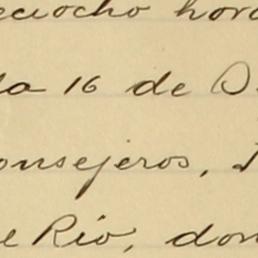 eciocho hora
la 16 de D
onsejeros,
e Río, don